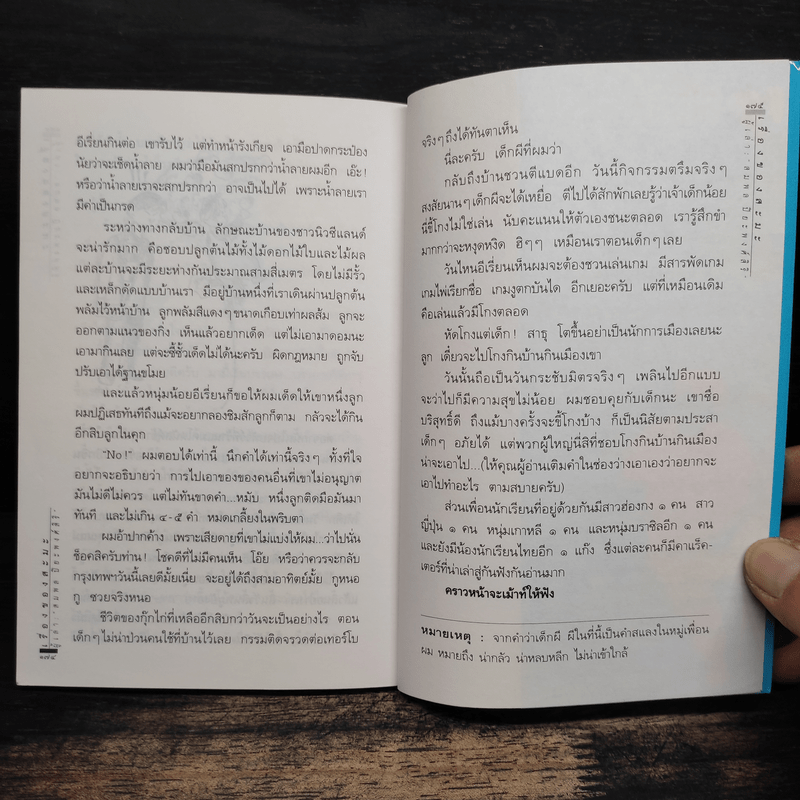 อีเรี่ยนกินต่อ เขารับไว้ แต่ทำหน้ารังเกียจ เอามือปาดกระป๋อง
นัยว่าจะเช็ดน้ำลาย ผมว่ามือมันสกปรกกว่าน้ำลายผมอีก เอ๊ะ!
หรือว่าน้ำลายเราจะสกปรกกว่า อาจเป็นไปได้ เพราะน้ำลายเรา
มีค่าเป็นกรด
ระหว่างทางกลับบ้าน ลักษณะบ้านของชาวนิวซีแลนด์
จะน่ารักมาก คือชอบปลูกต้นไม้ทั้งไม้ดอกไม้ใบและไม้ผล
แต่ละบ้านจะมีระยะห่างกันประมาณสามสี่เมตร โดยไม่มีรั้ว
และเหล็กดัดแบบบ้านเรา มีอยู่บ้านหนึ่งที่เราเดินผ่านปลูกต้น
พลัมไว้หน้าบ้าน ลูกพลัมสีแดงๆขนาดเกือบเท่าผลส้ม ลูกจะ
ออกตามแนวของกิ่ง เห็นแล้วอยากเด็ด แต่ไม่เอามาดอมนะ
เอามากินเลย แต่จะซี้ซั้วเด็ดไม่ได้นะครับ ผิดกฎหมาย ถูกจับ
ปรับเอาได้ฐานขโมย
และแล้วหนุ่มน้อยอีเรี่ยนก็ขอให้ผมเด็ดให้เขาหนึ่งลูก
ผมปฏิเสธทันทีถึงแม้จะอยากลองชิมสักลูกก็ตาม กลัวจะได้กิน
อีกสิบลูกในคุก
“No!” ผมตอบได้เท่านี้ นึกคำได้เท่านี้จริงๆ ทั้งที่ใจ
อยากจะอธิบายว่า การไปเอาของของคนอื่นที่เขาไม่อนุญาต
มันไม่ดีไม่ควร แต่ไม่ทันขาดคำ...หมับ หนึ่งลูกติดมือมันมา
ทันที และไม่เกิน ๔-๕ คำ หมดเกลี้ยงในพริบตา
ผมอ้าปากค้าง เพราะเสียดายที่เขาไม่แบ่งให้ผม...ว่าไปนั่น
ช็อคสิครับท่าน! โชคดีที่ไม่มีคนเห็น โอ๊ย หรือว่าควรจะกลับ
กรุงเทพฯวันนี้เลยดีมั้ยเนี่ย จะอยู่ได้ถึงสามอาทิตย์มั้ย กูหนอ
กู ซวยจริงหนอ
ชีวิตของกุ๊กไก่ที่เหลืออีกสิบกว่าวันจะเป็นอย่างไร ตอน
เด็กๆไม่น่าป่วนคนใช้ที่บ้านไว้เลย กรรมติดจรวดต่อเทอร์โบ
เรื่องของคะมะ
๑๗๔
จริงๆถึงได้ทันตาเห็น
นี่ละครับ เด็กผีที่ผมว่า
กลับถึงบ้านชวนตีแบดอีก วันนี้กิจกรรมตรึมจริงๆ
สงสัยนานๆเด็กผีจะได้เหยื่อ ตีไปได้สักพักเลยรู้ว่าเจ้าเด็กน้อย
นี่ขี้โกงไม่ใช่เล่น นับคะแนนให้ตัวเองชนะตลอด เรารู้สึกขำ
มากกว่าจะหงุดหงิด ฮิๆๆ เหมือนเราตอนเด็กๆเลย
วันไหนอีเรี่ยนเห็นผมจะต้องชวนเล่นเกม มีสารพัดเกม
เกมไพ่เรียกชื่อ เกมงูตกบันได อีกเยอะครับ แต่ที่เหมือนเดิม
คือเล่นแล้วมีโกงตลอด
หัดโกงแต่เด็ก! สาธุ โตขึ้นอย่าเป็นนักการเมืองเลยนะ
ลูก เดี๋ยวจะไปโกงกินบ้านกินเมืองเขา
วันนั้นถือเป็นวันกระชับมิตรจริงๆ เพลินไปอีกแบบ
จะว่าไปก็มีความสุขไม่น้อย ผมชอบคุยกับเด็กนะ เขาซื่อ
บริสุทธิ์ดี ถึงแม้บางครั้งจะขี้โกงบ้าง ก็เป็นนิสัยตามประสา
เด็กๆ อภัยได้ แต่พวกผู้ใหญ่นี่สิที่ชอบโกงกินบ้านกินเมือง
น่าจะเอาไป...(ให้คุณผู้อ่านเติมคำในช่องว่างเอาเองว่าอยากจะ
เอาไปทำอะไร ตามสบายครับ)
ส่วนเพื่อนนักเรียนที่อยู่ด้วยกันมีสาวฮ่องกง ๑ คน สาว
ญี่ปุ่น ๑ คน หนุ่มเกาหลี ๑ คน และหนุ่มบราซิลอีก ๑ คน
และยังมีน้องนักเรียนไทยอีก ๑ แก๊ง ซึ่งแต่ละคนก็มีคาแร็ค-
เตอร์ที่น่าเล่าสู่กันฟังกันอ่านมาก
คราวหน้าจะเม้าท์ให้ฟัง
หมายเหตุ : จากคำว่าเด็กผี ผีในที่นี้เป็นคำสแลงในหมู่เพื่อน
ผม หมายถึง น่ากลัว น่าหลบหลีก ไม่น่าเข้าใกล้
๑๗๕
เรื่องของคะมะ